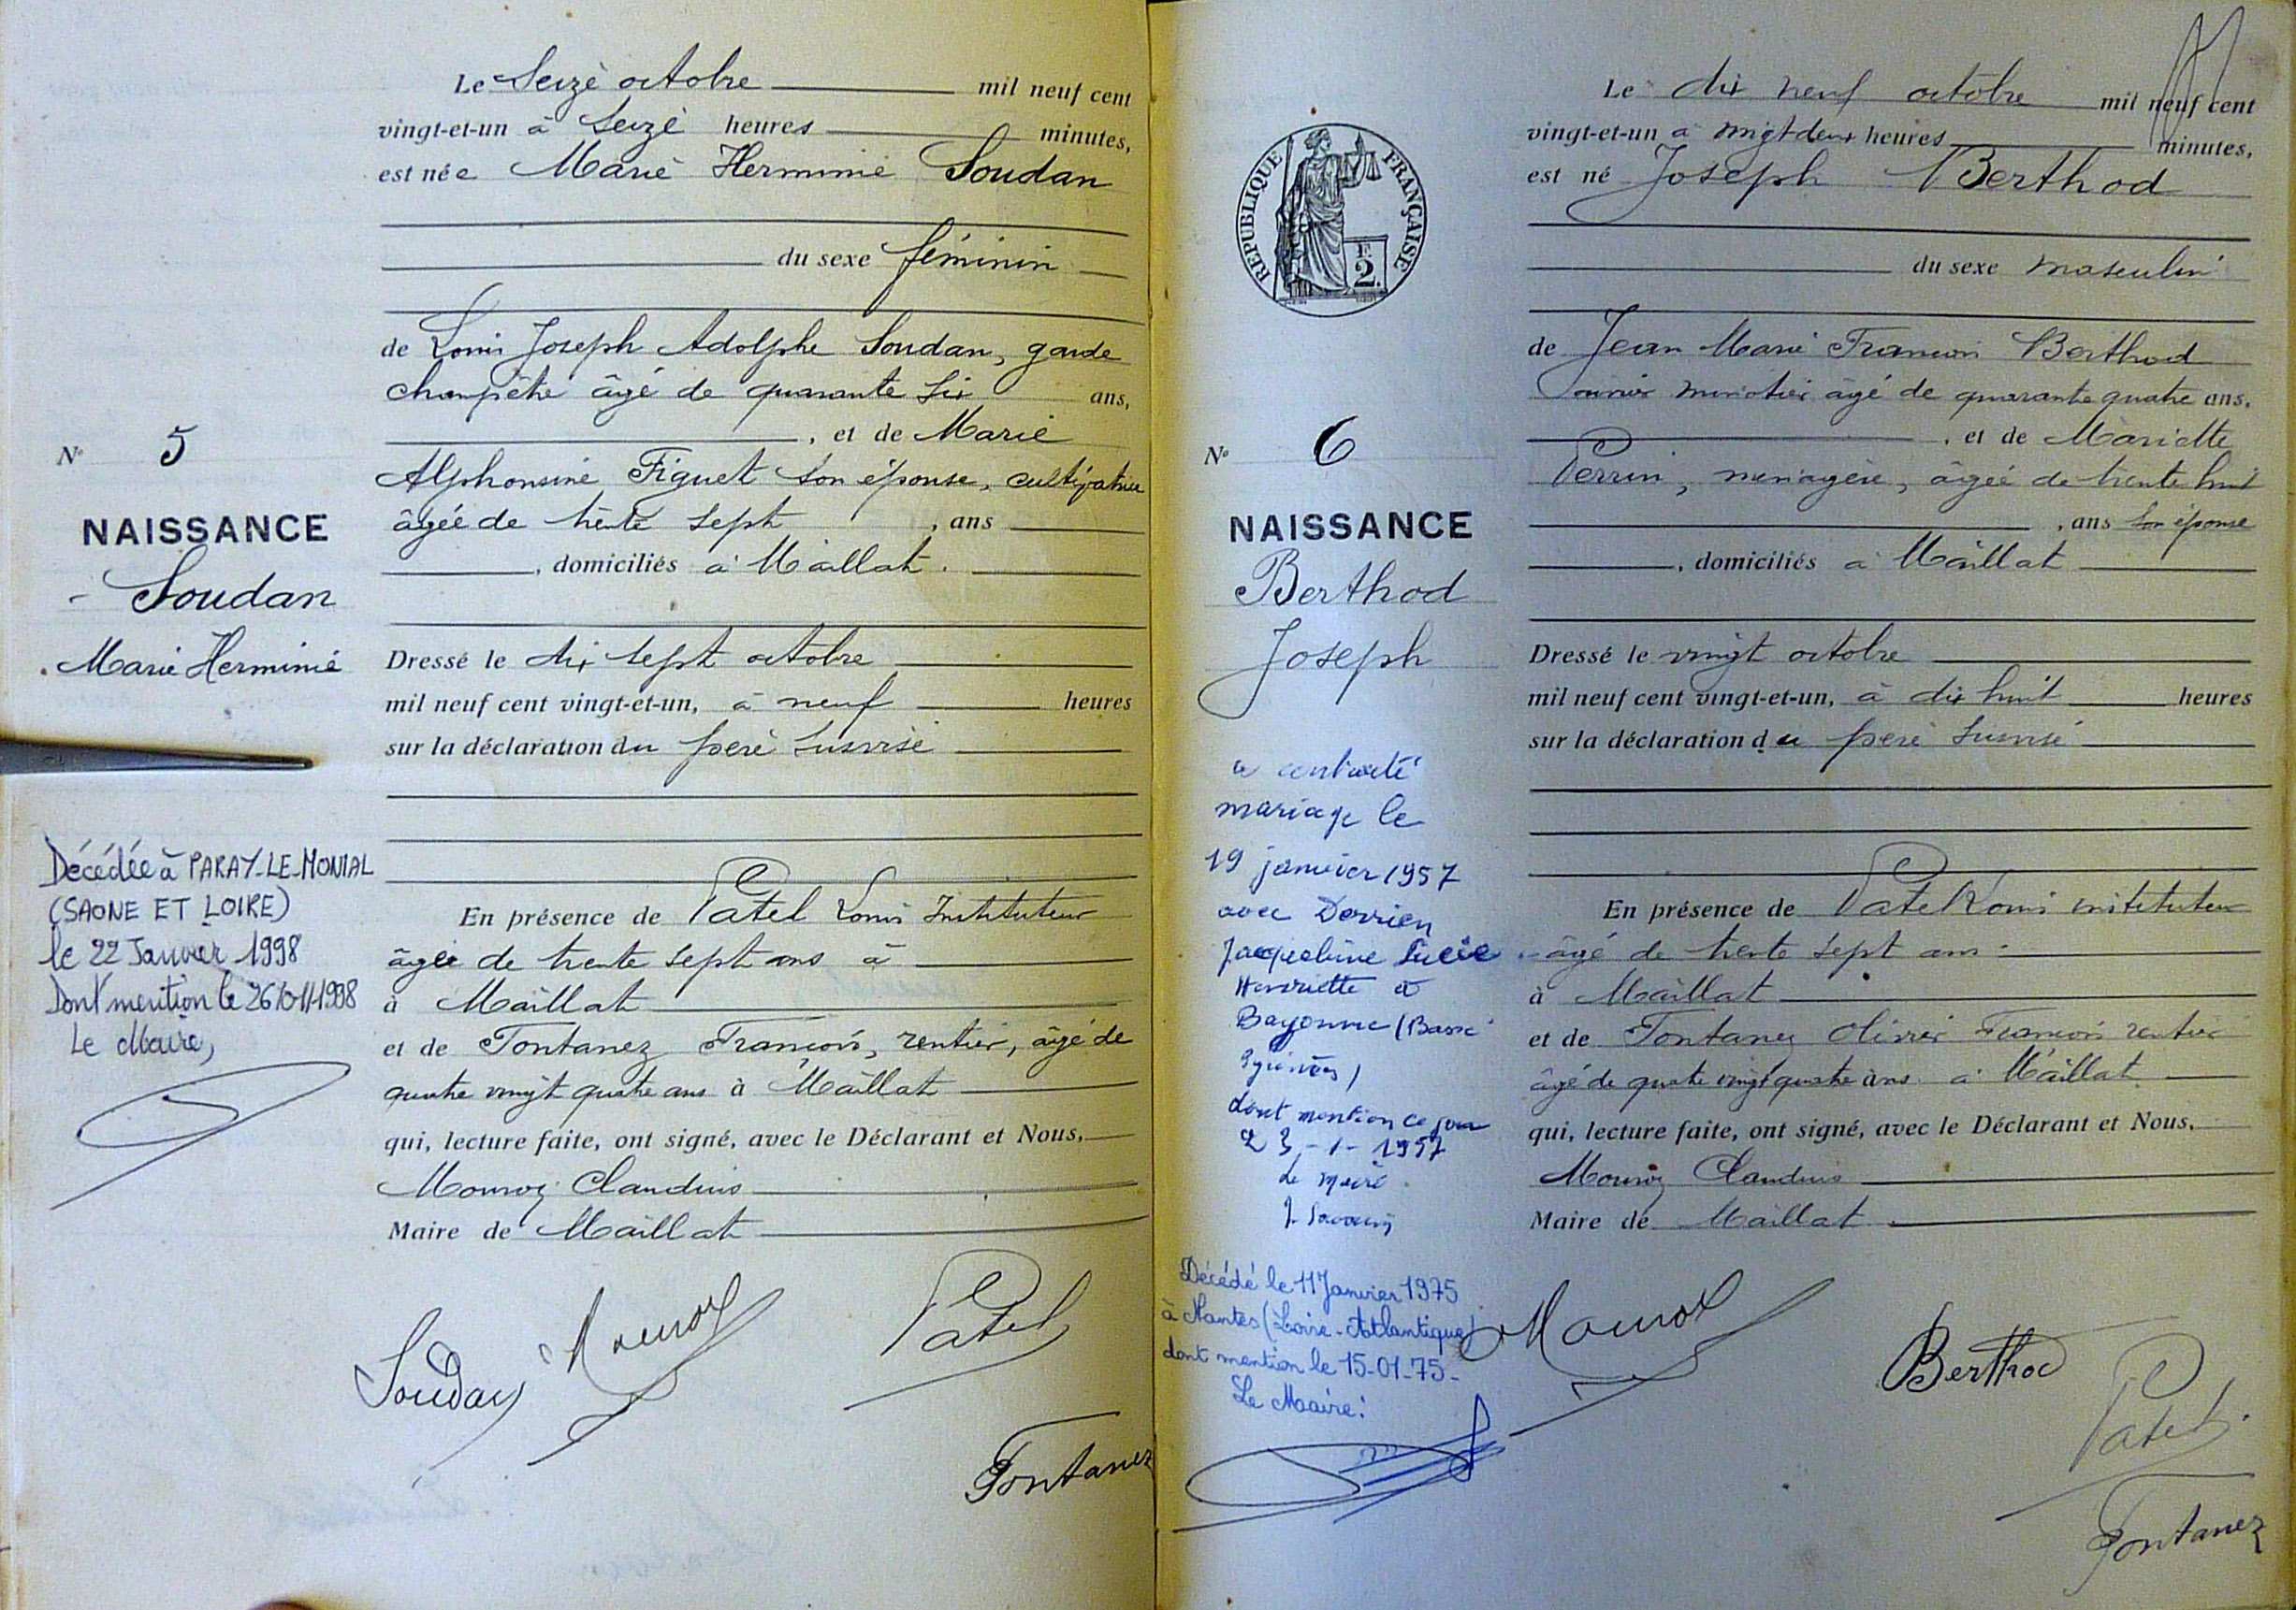 Le Seize octobre mil neuf cent
vingt-et-un à Seize heures minutes,
est née Marie Herminie Soudan
du sexe féminin
de Louis Joseph Adolphe Soudan, garde
champêtre âgé de quarante six ans,
, et de Marie
Alphonsine Figuet son épouse, cultivatrice
âgée de trente sept , ans
, domiciliés à Maillat.
N° 5
NAISSANCE
Soudan
Marie Herminie
Dressé le dix sept octobre
mil neuf cent vingt-et-un, à neuf heures
sur la déclaration du père susvisé
Décédée à PARAY-LE-MONIAL
(SAONE ET LOIRE)
le 22 Janvier 1998
Dont mention le 26/01/1998
Le Maire,
En présence de Patel Louis Instituteur
âgée de trente sept ans à
à Maillat
et de Fontanez François, rentier, âgé de
quatre vingt quatre ans à Maillat
qui, lecture faite, ont signé, avec le Déclarant et Nous,
Mouroz Claudius
Maire de Maillat
Soudan
Mouroz
Patel
Fontanez
Le dix neuf octobre mil neuf cent
vingt-et-un à vingt deux heures minutes,
est né Joseph Berthod
du sexe masculin
de Jean Marie François Berthod
ouvrier minotier âgé de quarante quatre ans,
, et de Mariette
Perrin, ménagère, âgée de trente huit
, ans son épouse
, domiciliés à Maillat
REPUBLIQUE FRANÇAISE
2.
N° 6
NAISSANCE
Berthod
Joseph
Dressé le vingt octobre
mil neuf cent vingt-et-un, à dix huit heures
sur la déclaration du père susvisé
a contracté
mariage le
19 janvier 1957
avec Derrien
Jacqueline Lucie
Henriette à
Bayonne (Basses
Pyrénées)
dont mention ce jour
23-1-1957
Le maire
En présence de Patel Louis instituteur
âgé de trente sept ans
à Maillat
et de Fontanez Olivier François rentier
âgé de quatre vingt quatre ans à Maillat
qui, lecture faite, ont signé, avec le Déclarant et Nous,
Mouroz Claudius
Maire de Maillat
Décédé le 11 Janvier 1975
à Nantes (Loire-Atlantique)
dont mention le 15-01-75-
Le Maire:
Mouroz
Berthod
Patel
Fontanez